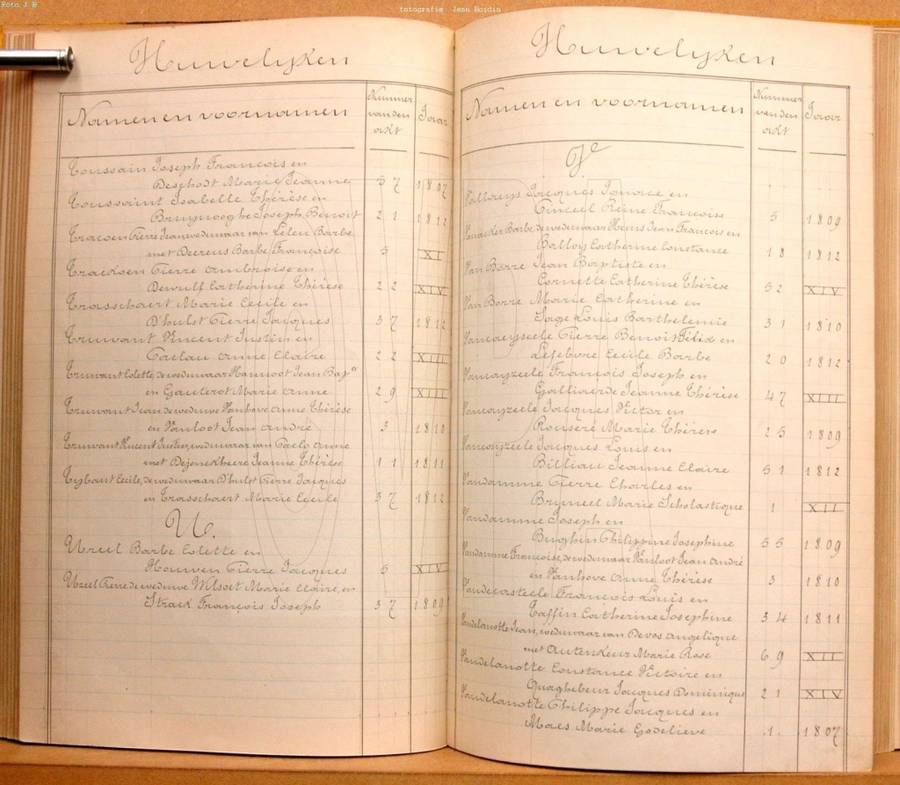 Foto J B
fotografie Jean Bordin
Huwelijken
Namen en voornamen
Nummer van den ackt
Jaar
Toussain Joseph Francois en
Deschodt Marie Jeanne 37 1807
Toussaint Isabelle Thérèse en
Bruynooghe Joseph Benoit 21 1812
met Decreus Barbe Françoise 5 XI
Pierre Ambroise en
Dewulf Catherine Thérèse 22 XIV
Trasschaert Marie Cecile en
D'hulst Pierre Jacques 37 1812
Truwant Vincent Justin en
Anne Claire 22 XIII
Truwant Colette, de wedwaar Jean Bap^te
en Gauterot Marie Anne 29 XIII
Truwant Jean de weduwe Vanhove Anne Thérèse
en Vanloot Jean André 3 1810
Truwant Vincent Justin, weduwaar van Anne
met Dejonckheere Jeanne Thérèse 11 1811
Tijbaut Cecile, de weduwaar D'hulst Pierre Jacques
en Trasschaert Marie Cecile 37 1812
U.
Ureel Barbe Colette en
Houwen Pierre Jacques 5 XIV
Ureel de weduwe Marie Claire, en
Strack François Joseph 37 1809
Huwelijken
Namen en voornamen
Nummer van den ackt
Jaar
Jacques Ignace en
Françoise 5 1809
Barbe de weduwaar Jean Francois en
Catherine Constance 18 1812
Van Borre Jean Baptiste en
Cornette Catherine Thérèse 52 XIV
Van Borre Marie Catherine en
Sage Louis Barthelemie 31 1810
Pierre Benoit Félix en
Lefebvre Cecile Barbe 20 1812
Vancayzeele François Joseph en
Galliaerde Jeanne Thérèse 47 XIII
Vancayzeele Jacques Victor en
Marie Thérèse 25 1809
Vancayzeele Jacques Louis en
Billiau Jeanne Claire 51 1812
Vandamme Pierre Charles en
Bryneel Marie Scholastique 1 XII
Vandamme Joseph en
Burghin Philippine Josephine 55 1809
Vandamme Françoise, de weduwaar Vanloot Jean André
en Vanhove Anne Thérèse 3 1810
Vandecasteele François Louis en
Taffin Catherine Josephine 34 1811
Vandelanotte Jean, weduwaar van Devos Angelique
met Autenkeur Marie Rose 69 XII
Vandelanotte Constance Victoire en
Quaghebeur Jacques Dominique 21 XIV
Vandelanotte Philippe Jacques en
Maes Marie Godelieve 1 1807